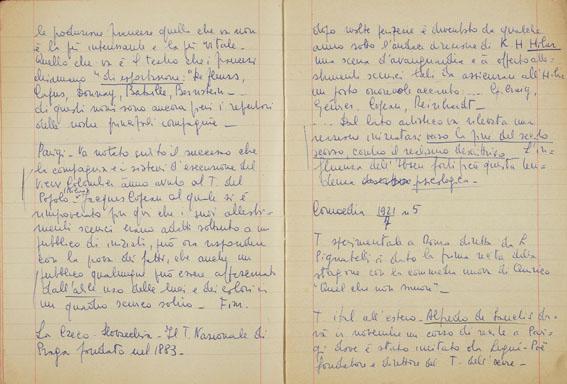 la produzione francese quella che va non
è la più interessante e la più vitale.
Quello che va è il teatro che i francesi
chiamano "di esportazione": De Flers,
Capus, Donnay, Bataille, Bernstein
di questi nomi sono ancora pieni i repertori
delle nostre principali compagnie
Parigi - Va notato subito il successo che
la compagnia e i sistemi d'esecuzione del
Vieux Colombier ànno avuto al T. del
Popolo - Jacques Copeau al quale si è
rimproverato fin qui che i suoi allesti-
menti scenici erano adatti soltanto a un
pubblico di iniziati, può ora rispondere
con la prova dei fatti, che anche un
pubblico qualunque può essere affascinato
dall'abile uso delle luci e dei colori in
un quadro scenico sobrio - Fim.
La Czeco-Slovacchia - Il T. Nazionale di
Praga fondato nel 1883 -
dopo molte è diventato da qualche
anno sotto l'audace direzione di K H Hilar
una scena d'avanguardia e à offerto alle-
stimenti scenici tali da assicurare all'Hilar
un posto onorevole accanto G. Craig,
Copeau, Reinhardt -
Dal lato artistico va rilevata una
reazione iniziatasi verso la fine del secolo
scorso, contro il realismo L'in-
fluenza dell'Ibsen fortificò questa ten-
denza psicologica -
Comoedia 1921 n 5
7
T sperimentale a Roma diretto da L
Pignatelli à dato la prima recita della
stagione con la commedia nuova di Enrico
"Quel che non muore" -
T ital all'estero - Alfredo de Sanctis da-
rà in novembre un corso di recite a Pari-
gi dove è stato invitato da Lugné-Poë
fondatore e direttore del T. dell'Œuvre -